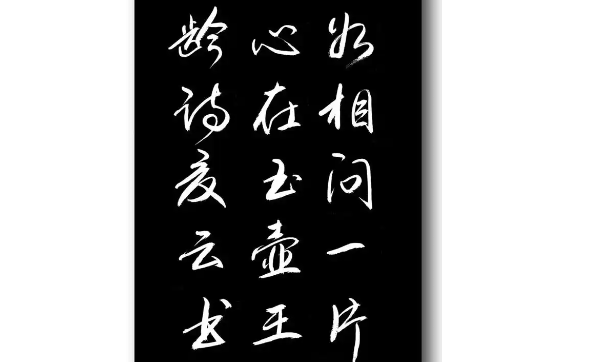 如相问一片
心在玉壶王
龄诗夏云书